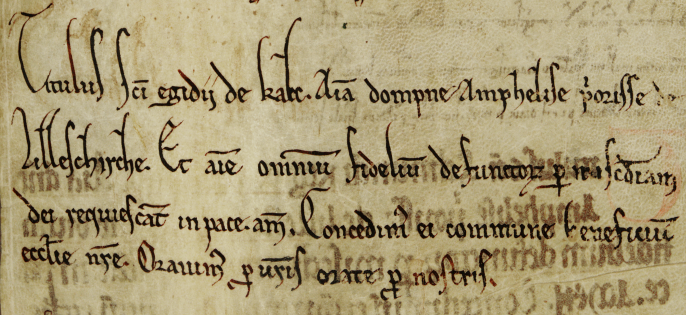 Titulus sc̄i egidij de katt. Aīa dompne Amphelise p'orisse de
lilleschirche. Et aīe omniū fideliū defunctoꝝ ꝑ mīscd̄iam
dei requiescāt in pace. am̄. Concedim' ei commune beneficiū
eccl̄ie nr̄e. Orauim' ꝓ ur̄is orate ꝓ nostris.